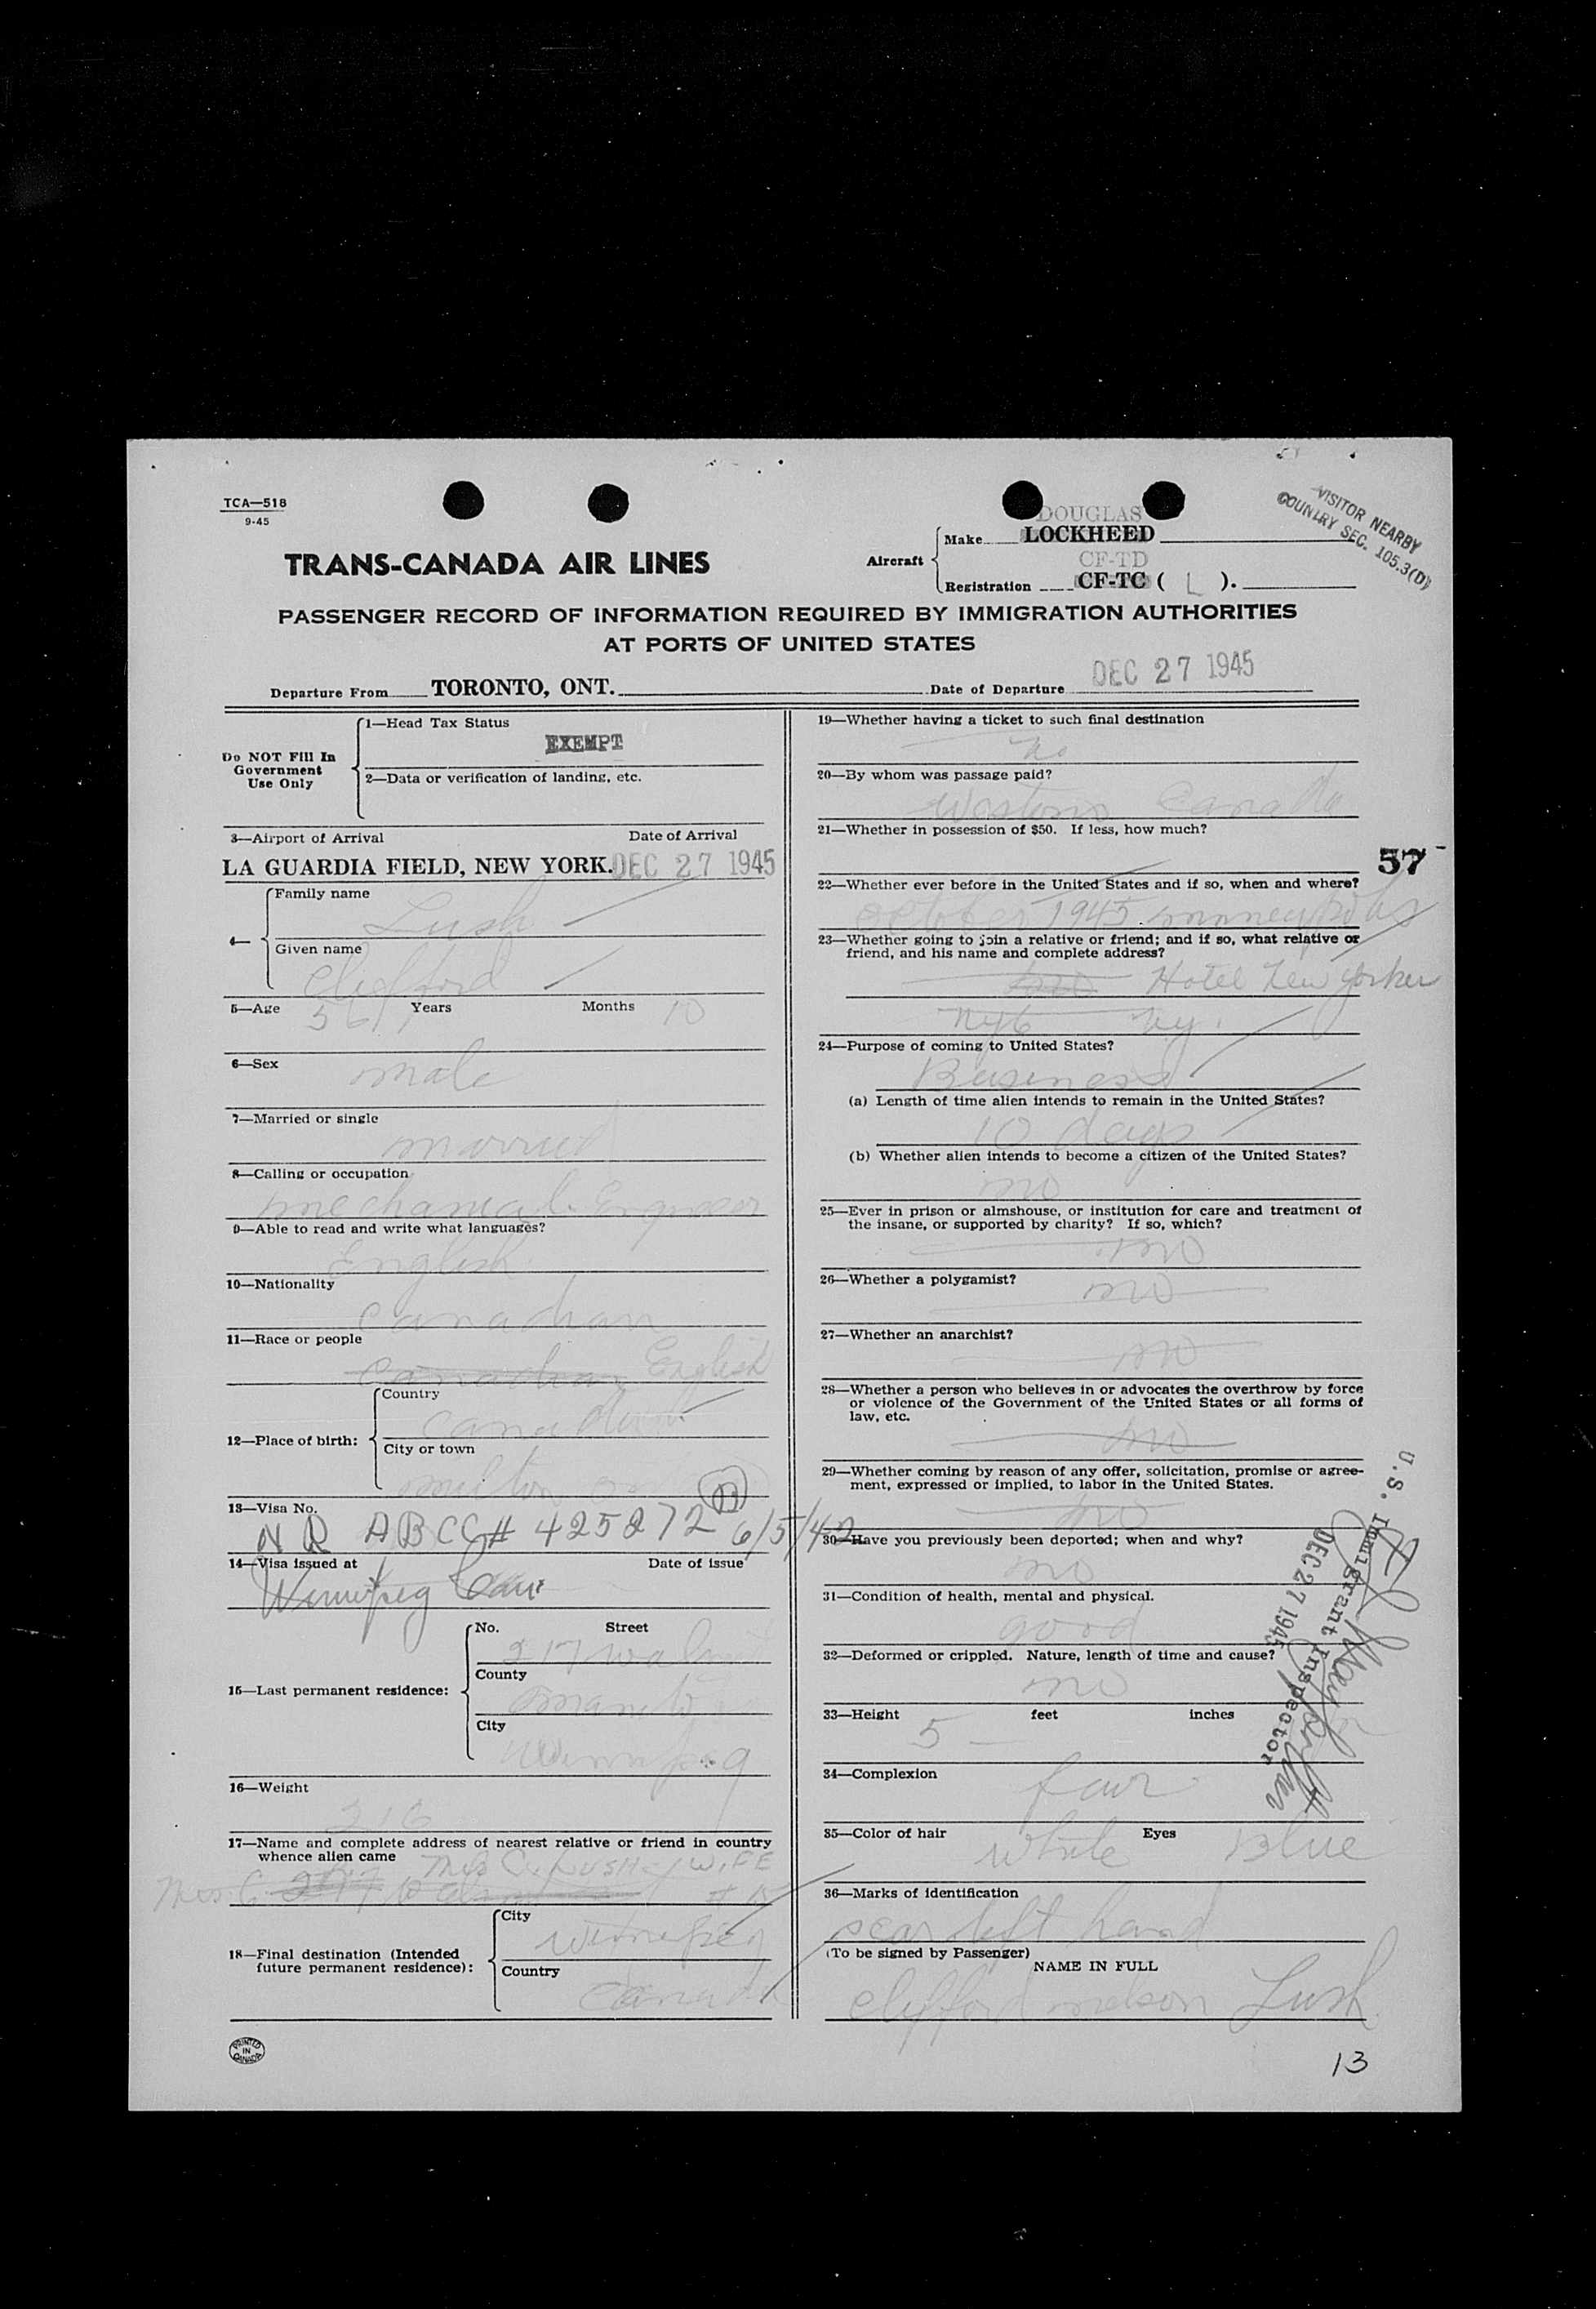 TCA—518
9-45
TRANS-CANADA AIR LINES
Aircraft
DOUGLAS
Make LOCKHEED
CF-TD
Registration CF-TC ( L ).
VISITOR NEARBY
COUNTRY SEC. 105.3(D)
PASSENGER RECORD OF INFORMATION REQUIRED BY IMMIGRATION AUTHORITIES
AT PORTS OF UNITED STATES
Departure From TORONTO, ONT. Date of Departure DEC 27 1945
Do NOT Fill In
Government
Use Only
1—Head Tax Status
EXEMPT
2—Data or verification of landing, etc.
3—Airport of Arrival Date of Arrival
LA GUARDIA FIELD, NEW YORK. DEC 27 1945
4—
Family name
Lush
Given name
Clifford
5—Age 56 Years Months 10
6—Sex
male
7—Married or single
married
8—Calling or occupation
mechanical Engineer
9—Able to read and write what languages?
English
10—Nationality
Canadian
11—Race or people
Canadian English
12—Place of birth:
Country
Canada
City or town
milton
13—Visa No.
N R ABCC# 425272 B 6/5/42
14—Visa issued at Date of issue
Winnipeg Can
15—Last permanent residence:
No. Street
217
County
City
Winnipeg
16—Weight
216
17—Name and complete address of nearest relative or friend in country
whence alien came
Mrs C. LUSH WIFE
Mrs. C.
18—Final destination (Intended
future permanent residence):
City
Winnipeg
Country
Canada
PRINTED
IN
CANADA
19—Whether having a ticket to such final destination
no
20—By whom was passage paid?
Western Canada
21—Whether in possession of $50. If less, how much?
57
22—Whether ever before in the United States and if so, when and where?
October 1945 minneapolis
23—Whether going to join a relative or friend; and if so, what relative or
friend, and his name and complete address?
no Hotel New Yorker
NYC NY.
24—Purpose of coming to United States?
Business
(a) Length of time alien intends to remain in the United States?
10 days
(b) Whether alien intends to become a citizen of the United States?
no
25—Ever in prison or almshouse, or institution for care and treatment of
the insane, or supported by charity? If so, which?
no
26—Whether a polygamist?
no
27—Whether an anarchist?
no
28—Whether a person who believes in or advocates the overthrow by force
or violence of the Government of the United States or all forms of
law, etc.
no
29—Whether coming by reason of any offer, solicitation, promise or agree-
ment, expressed or implied, to labor in the United States.
no
30—Have you previously been deported; when and why?
no
31—Condition of health, mental and physical.
good
32—Deformed or crippled. Nature, length of time and cause?
no
33—Height 5 feet inches
34—Complexion
fair
35—Color of hair white Eyes Blue
36—Marks of identification
scar left hand
(To be signed by Passenger)
NAME IN FULL
Clifford nelson Lush
U.S. Immigrant Inspector
DEC 27 1945
13